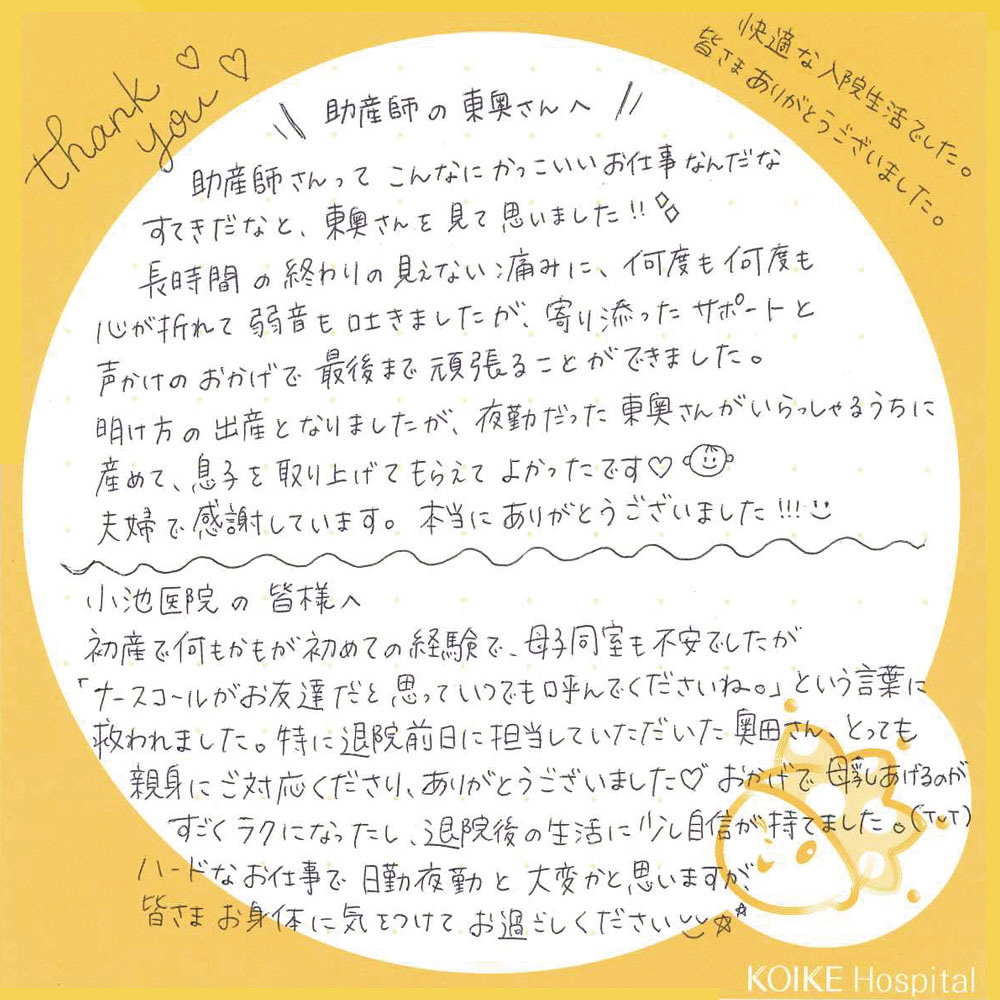 thank
you ♡♡
快適な入院生活でした。
皆さまありがとうございました。
\\ 助産師の東奥さんへ //
助産師さんって こんなにかっこいいお仕事なんだな
すてきだなと、東奥さんを見て思いました!!
長時間の終わりの見えない痛みに、何度も何度も
心が折れて弱音も吐きましたが、寄り添ったサポートと
声かけのおかげで最後まで頑張ることができました。
明け方の出産となりましたが、夜勤だった東奥さんがいらっしゃるうちに
産めて、息子を取り上げてもらえてよかったです♡
夫婦で感謝しています。本当にありがとうございました!!!
小池医院の皆様へ
初産で何もかもが初めての経験で、母子同室も不安でしたが
「ナースコールがお友達だと思っていつでも呼んでくださいね。」という言葉に
救われました。特に退院前日に担当していただいた奥田さん、とっても
親身にご対応くださり、ありがとうございました♡ おかげで母乳あげるのが
すごくラクになったし、退院後の生活に少し自信が持てました。(T▽T)
ハードなお仕事で日勤夜勤と大変かと思いますが、
皆さまお身体に気をつけてお過ごしください☆
KOIKE Hospital